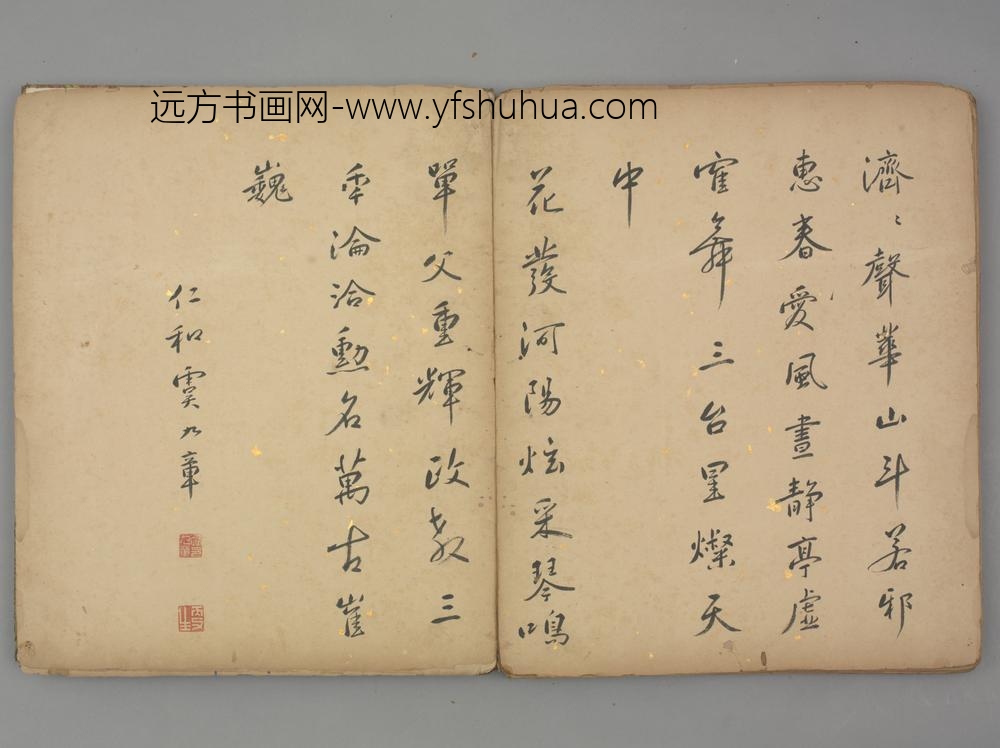 远方书画网-www.yfshuhua.com
濟〻聲華山斗若邪
惠春愛風晝静亭虛
寉舞三台星燦天
中
花發河陽炫采琴鳴
單父重輝政教三
年淪洽勳名萬古崔
巍
仁和虞九章